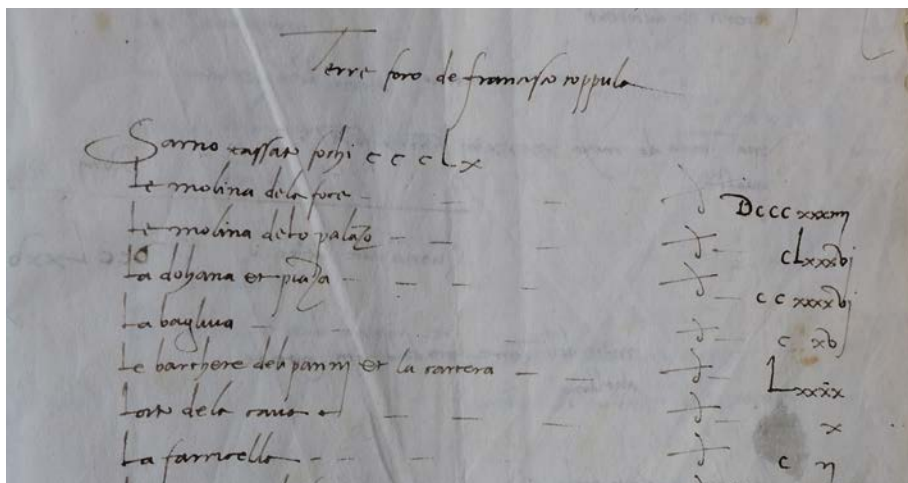 Terre foro de francisco coppula
Sarno tassato fochi c c c L x
Le molina dela foce D ccc xxx iij
Le molina delo palazo c L xxx vj
La dohana et piaza c c xxxx vj
La bagliva c xv
Le barchere deli panni et la cartera L xxxx
Lorto dela x
La farricella c ij